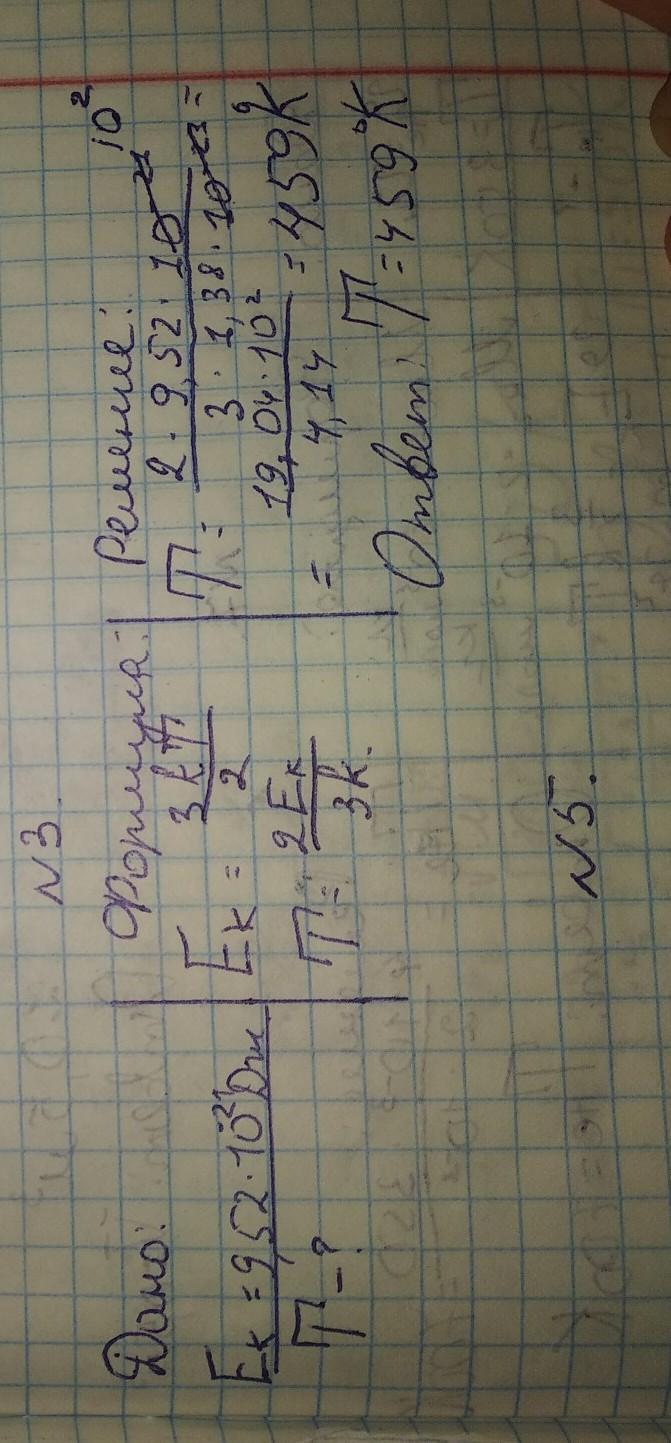 N3.
Дано:
Eк = 9,52 · 10⁻²¹ Дж
T - ?
Формула:
Eк = 3kT/2
T = 2Eк/3k.
Решение:
T = 2 · 9,52 · 10⁻²¹ 10² / 3 · 1,38 · 10⁻²³ =
= 19,04 · 10² / 4,14 = 459°K
Ответ: T = 459°K
N5.